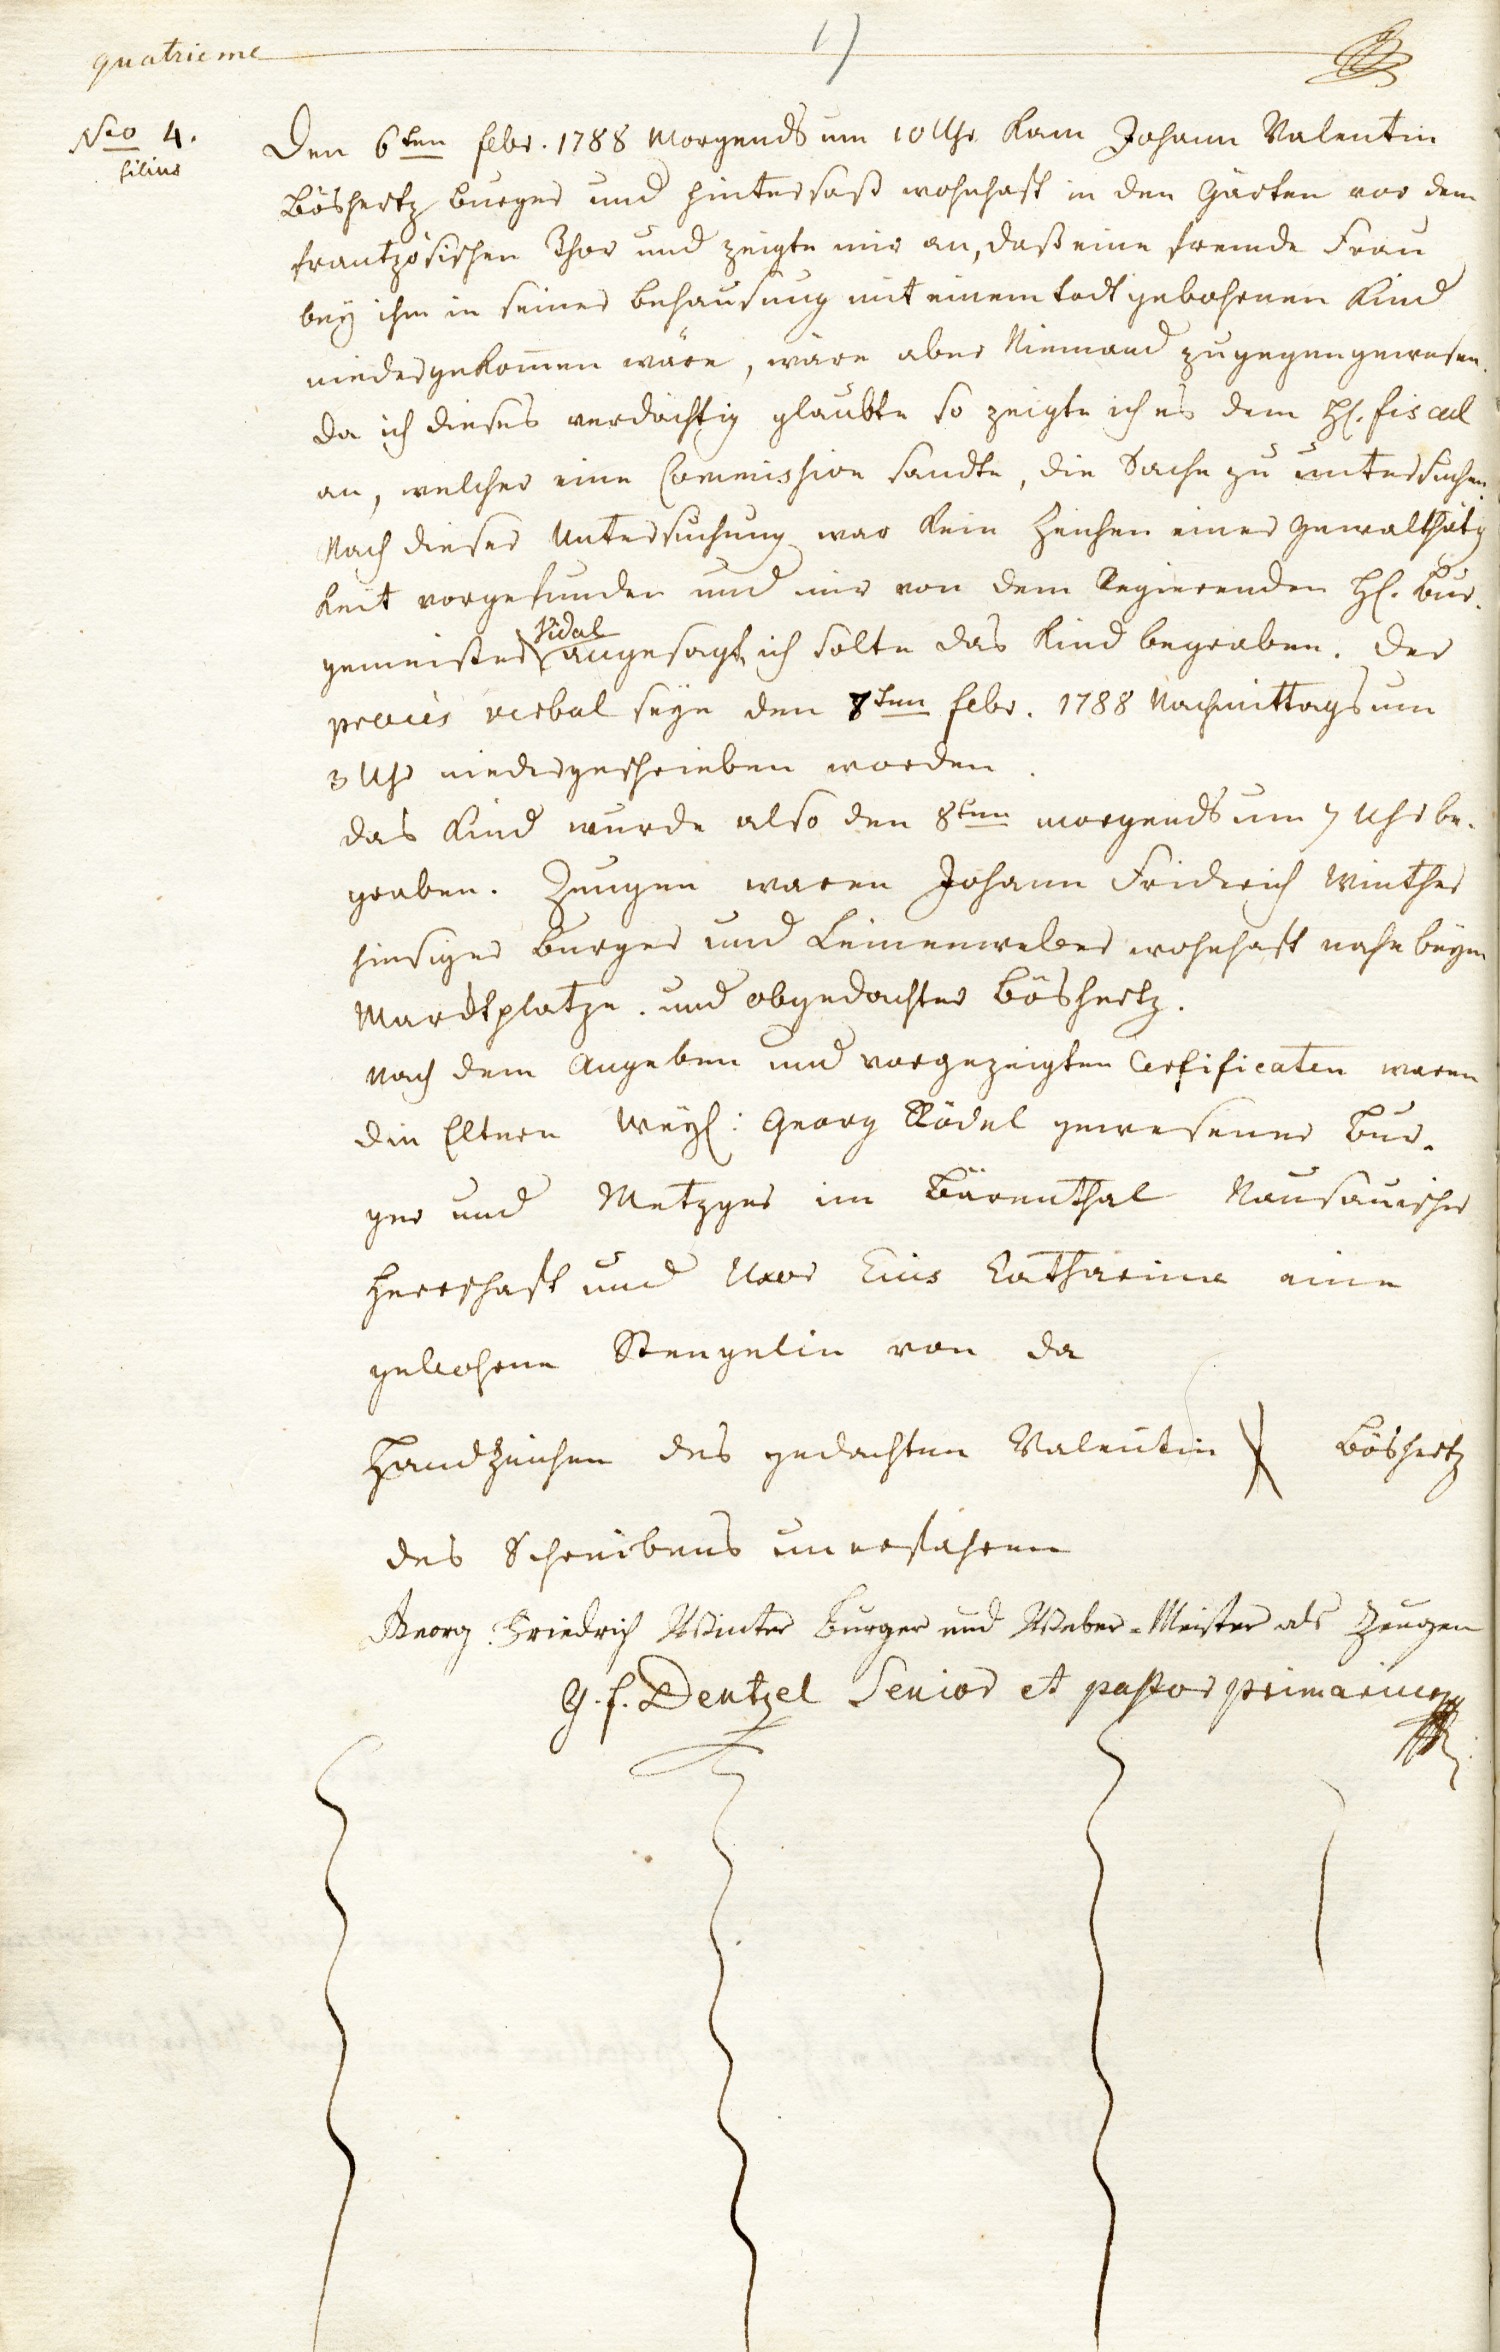 quatrieme
Nro 4.
filius
Den 6ten febr. 1788 Morgends um 10 Uhr kam Johann Valentin
Böshertz burger und hintersaß wohnhaft in den Gärten vor dem
frantzösischen Thor und zeigte mir an, daß eine fremde Frau
bey ihm in seiner behausung mit einem todt gebohrenen Kind
niedergekom̄en wäre, wäre aber Niemand zugegen gewesen.
da ich dieses verdächtig glaubte so zeigte ich es dem H. fiscal
an, welcher eine Commission sandte, die Sache zu untersuchen.
Nach dieser Untersuchung war kein Zeichen einer Gewalthätig
keit vorgefunden und mir von dem Regierenden H. Bur-
gemeister Vidal angesagt ich solte das Kind begraben. der
procès verbal seye den 7ten febr. 1788 Nachmittags um
3 Uhr niedergeschrieben worden.
das Kind wurde also den 8ten morgends um 7 Uhr be-
graben. Zeugen waren Johann Fridrich Winther
hiesiger burger und Leinenweber wohnhaft nahe beym
Marcktplatze. und obgedachter Böshertz.
Nach dem Angeben und vorgezeigten Certificaten waren
die Eltern Weyl: Georg Rödel gewesener Bur-
ger und Metzger im Bärenthal Nausauischer
Herrschaft und Uxor Eius Catharina eine
gebohrene Stengelin von da
Handzeichen des gedachten Valentin X Böshertz
des Schreibens unerfahren
Georg Friedrich Winter burger und Weber-Meister als Zeugen
G. f. Dentzel Senior et pastor primarius